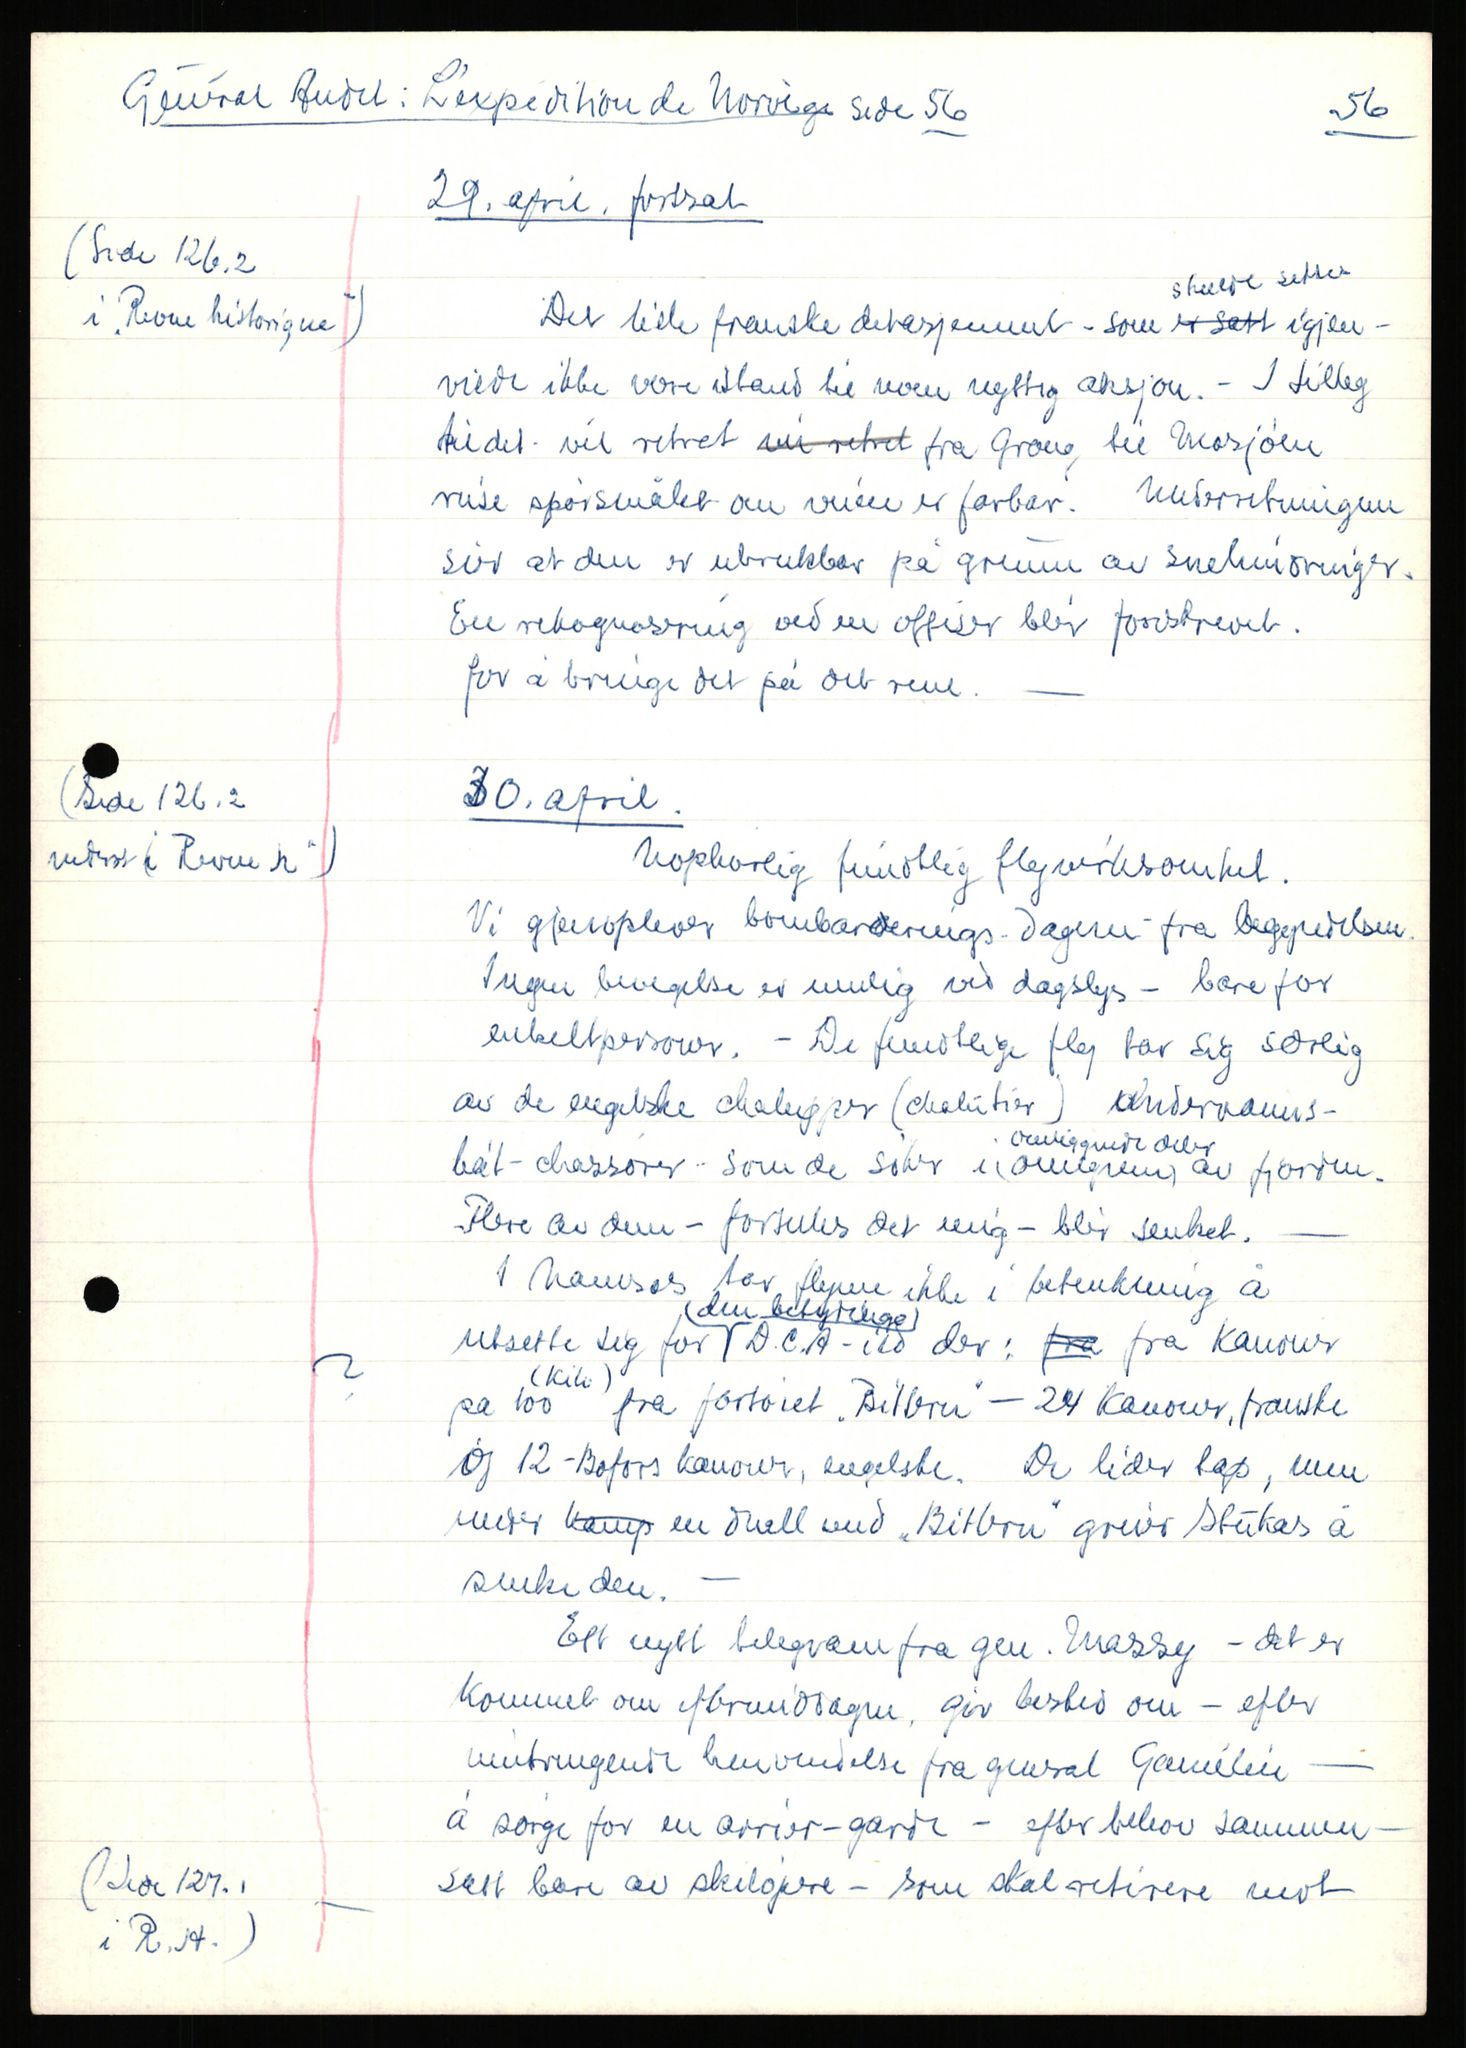 Général Audet: L'expédition de Norvège side 56
56
29. april. fortsat
(Side 126.2
i „Revue historique")
skulde settes
Det lille franske detasjement - som er satt igjen -
vilde ikke være istand til noen nyttig aksjon. - I tillæg
til det vil retret vil retret fra Grong til Mosjöen
reise spörsmålet om veien er farbar. Underretningen
sier at den er ubrukbar på grunn av snehindringer.
En rekognosering ved en offiser blir foreskrevet.
for å bringe det på det rene. —
(Side 126.2
nederst i „Revue h")
30. april.
Uophörlig fiendtlig flyvirksomhet.
Vi gjenoplever bombarderings-dagene fra begynnelsen.
Ingen bevegelse er mulig ved dagslys - bare for
enkeltpersoner. - De fiendtlige fly tar sig særlig
av de engelske chalupper (chalutier) undervanns-
båt-chassörer - som de söker i omliggende deler (omegnen) av fjorden.
Flere av dem - fortelles det mig - blir senket. —
I Namsos tar flyene ikke i betenkning å
utsette sig for (den betydelige) D.C.A-ild der: fra fra kanoner
?
på 100 (kilo) fra fartöiet „Bittern" - 24 kanoner, franske
og 12-Bofors kanoner, engelske. De lider tap, men
under kamp en duell med „Bittern" greier Stukas å
senke den. —
Ett nytt telegram fra gen. Massy - det er
kommet om eftermiddagen, gir beskjed om - efter
inntrengende henvendelse fra general Gamelin —
å sörge for en arrier-garde - efter behov sammen-
satt bare av skilöpere - som skal retirere mot
(Side 127.1
i R.H.)